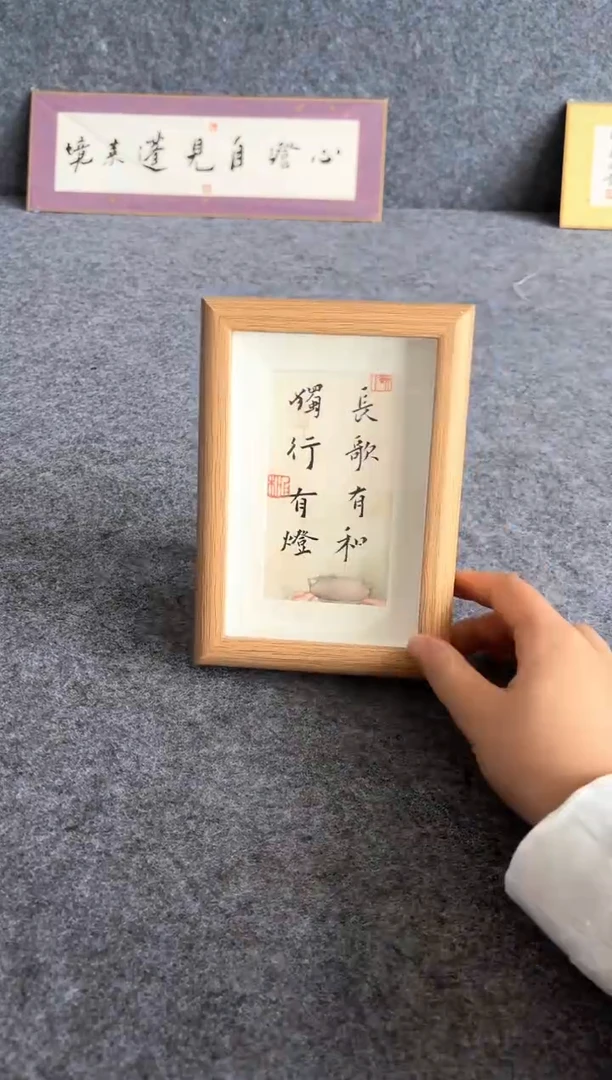 心澄自見蓬莱境
長歌有和
獨行有燈